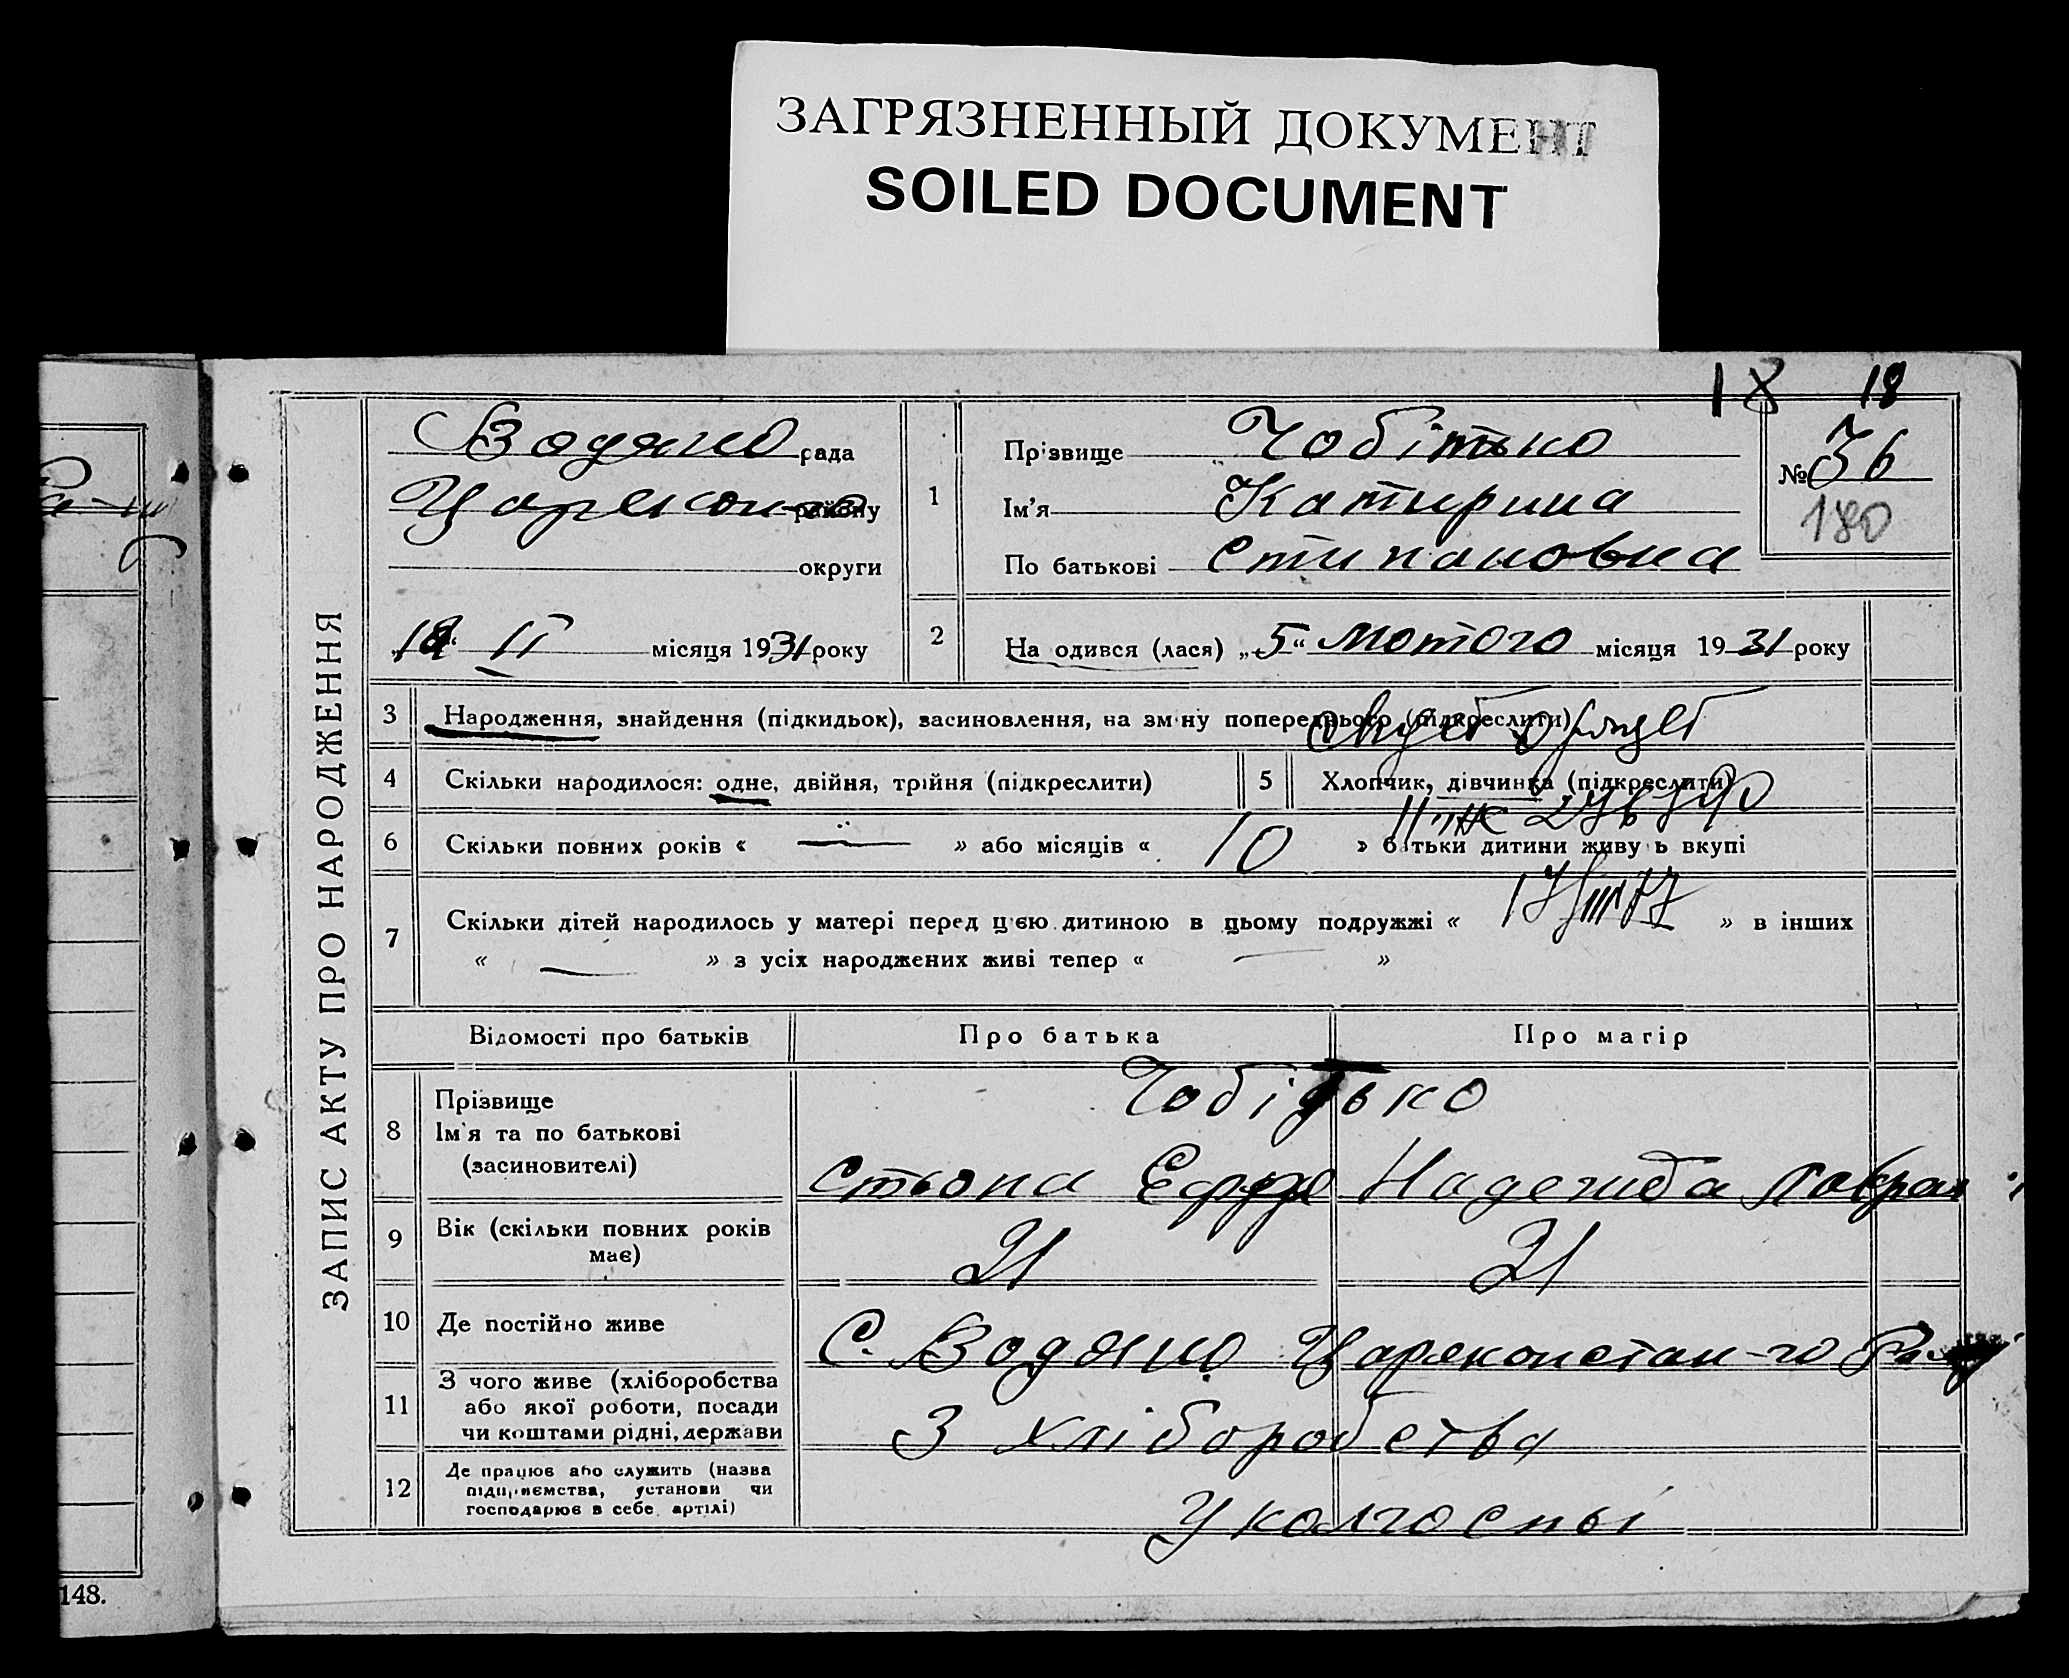 ЗАГРЯЗНЕННЫЙ ДОКУМЕНТ
SOILED DOCUMENT
18 18
ЗАПИС АКТУ ПРО НАРОДЖЕННЯ
Водяно рада
району
округи
18 II місяця 1931 року
1 Прізвище Чобітько
Ім'я Катирина
По батькові Стипановна
№ 36
180
2 На одився (лася) „5“ Лютого місяця 1931 року
3 Народження, знайдення (підкидьок), засиновлення, на зміну попереднього (підкреслити)
4 Скільки народилося: одне, двійня, трійня (підкреслити)
5 Хлопчик, дівчинка (підкреслити)
6 Скільки повних років « — » або місяців « 10 » батьки дитини живуть вкупі
7 Скільки дітей народилось у матері перед цією дитиною в цьому подружжі « » в інших
« — » з усіх народжених живі тепер « — »
Відомості про батьків Про батька Про матір
8 Прізвище
Ім'я та по батькові
(засиновителі)
Чобітько
Стьопа Надежда
9 Вік (скільки повних років має)
21 21
10 Де постійно живе
С. Водяно Цареконстан-го
11 З чого живе (хліборобства
або якої роботи, посади
чи коштами рідні, держави
З хліборобства
12 Де працює або служить (назва
підприємства, установи чи
господарює в себе, артілі)
У колгоспы
148.